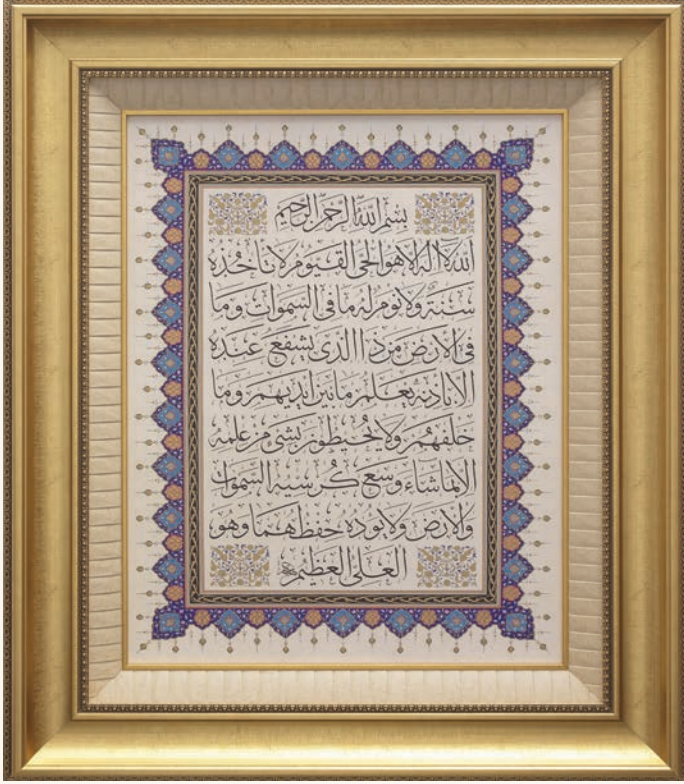 بِسْمِ اللهِ الرَّحْمنِ الرَّحيمِ
اَللهُ لا اِلهَ اِلاّ هُوَ الْحَيُّ الْقَيّومُ لا تَأخُذُهُ
سِنَةٌ وَلا نَومٌ لَهُ ما فِي السَّمواتِ وَما
فِي الاَرْضِ مَنْ ذَا الَّذي يَشْفَعُ عِنْدَهُ
اِلاّ بِاِذْنِه يَعْلَمُ ما بَيْنَ اَيْديهِمْ وَما
خَلْفَهُمْ وَلا يُحيطونَ بِشَيْءٍ مِنْ عِلْمِه
اِلاّ بِما شاءَ وَسِعَ كُرْسِيُّهُ السَّمواتِ
وَالاَرْضَ وَلا يَؤدُهُ حِفْظُهُما وَهُوَ
الْعَلِيُّ الْعَظيمُ